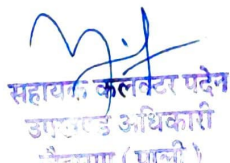 सहायक कलेक्टर पदेन
उपखण्ड अधिकारी
( पाली )